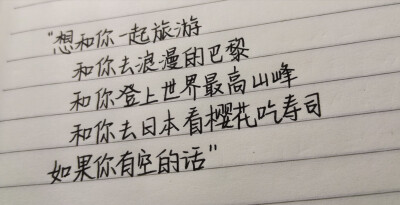 "想和你一起旅游
和你去浪漫的巴黎
和你登上世界最高山峰
和你去日本看樱花吃寿司
如果你有空的话"